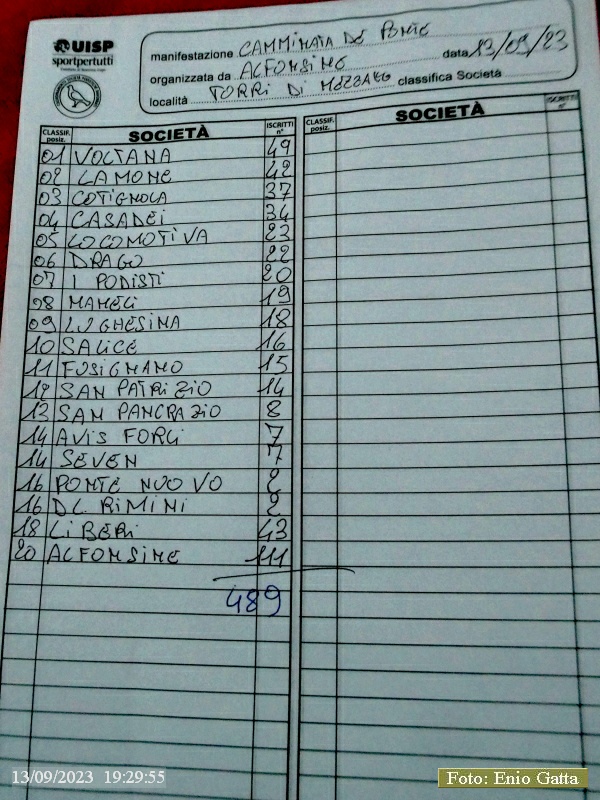 UISP
sportpertutti
manifestazione CAMMINATA DE PONTE
organizzata da ALFONSINE data 13/09/23
località TORRI DI MEZZANO classifica Società
CLASSIF. posiz. SOCIETÀ ISCRITTI n°
CLASSIF. posiz. SOCIETÀ ISCRITTI n°
01 VOLTANA 49
02 LAMONE 42
03 COTIGNOLA 37
04 CASADEI 34
05 LOCOMOTIVA 23
06 DRAGO 22
07 I PODISTI 20
08 MAMELI 19
09 LUGHESINA 18
10 SALICE 16
11 FUSIGNANO 15
12 SAN PATRIZIO 14
13 SAN PANCRAZIO 8
14 AVIS FORLI 7
14 SEVEN 7
16 PONTE NUOVO 2
16 DL RIMINI 2
18 LIBERI 43
20 ALFONSINE 111
489
13/09/2023 19:29:55
Foto: Enio Gatta